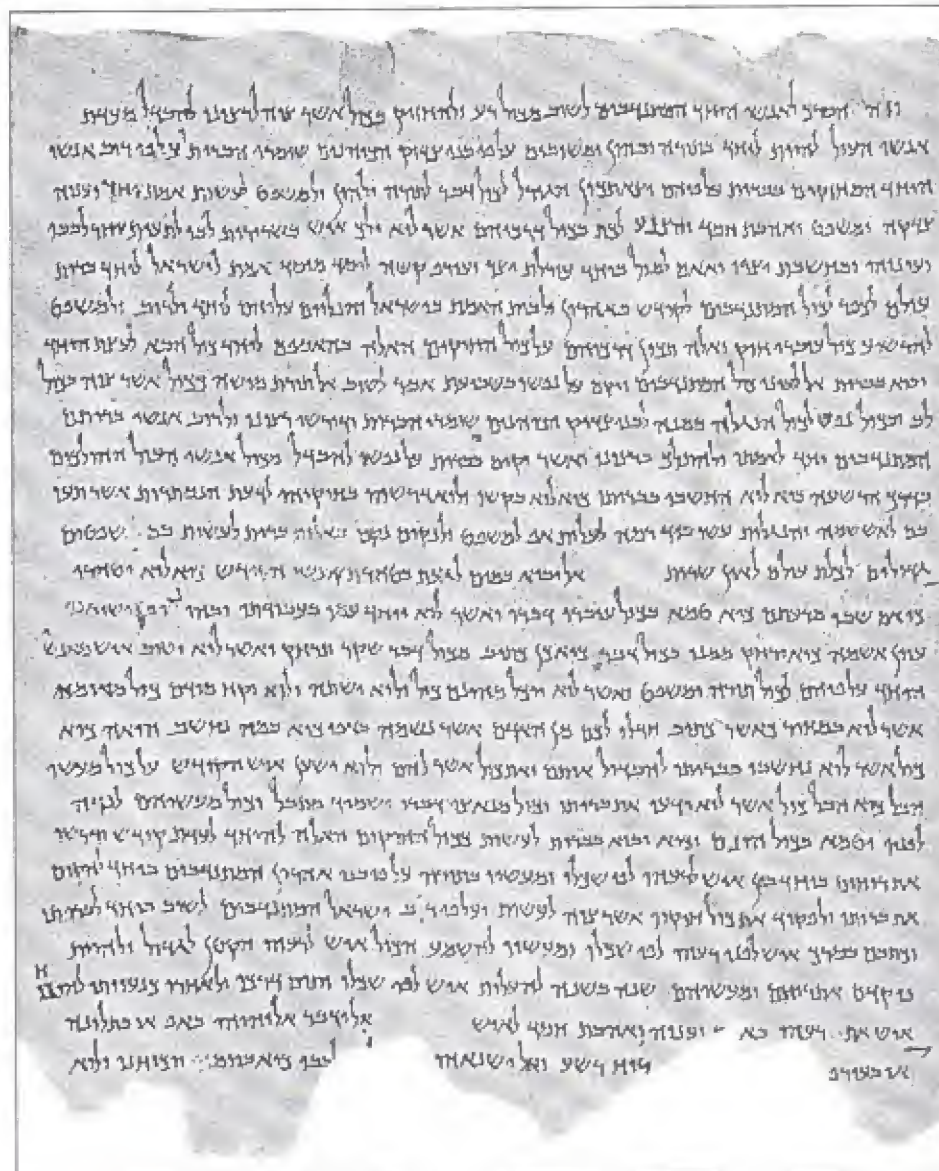 וזה הסרך לאנשי היחד המתנדבים לשוב מכול רע ולהחזיק בכול אשר צוה לרצונו להבדל מעדת
אנשי העול להיות ליחד בתורה ובהון ומשובים על פי בני צדוק הכוהנים שומרי הברית ועל פי רוב אנשי
היחד המחזקים בברית על פיהם יצא תכון הגורל לכול דבר לתורה ולהון ולמשפט לעשות אמת יחד וענוה
צדקה ומשפט ואהבת חסד והצנע לכת בכול דרכיהם אשר לוא ילך איש בשרירות לבו לתעות אחר לבבו
ועינוהי ומחשבת יצרו ואאם למול ביחד עורלת יצר ועורף קשה ליסד מוסד אמת לישראל ליחד ברית
עולם לכפר לכול המתנדבים לקודש באהרון ולבית האמת בישראל והנלוים עליהם ליחד ולריב ולמשפט
להרשיע כול עוברי חוק ואלה תכון דרכיהם על כול החוקים האלה בהאספם ליחד כול הבא לעצת היחד
יבוא בברית אל לעיני כול המתנדבים ויקם על נפשו בשבועת אסר לשוב אל תורת מושה ככול אשר צוה בכול
לב ובכול נפש לכול הנגלה ממנה לבני צדוק הכוהנים שומרי הברית ודורשי רצונו ולרוב אנשי בריתם
המתנדבים יחד לאמתו ולהתלך ברצונו ואשר יקים בברית על נפשו להבדל מכול אנשי העול ההולכים
בדרך הרשעה כיא לוא החשבו בבריתו כיא לוא בקשו ולוא דרשהו בחוקוהי לדעת הנסתרות אשר תעו
בם לאשמה והנגלות עשו ביד רמה לעלות אף למשפט ולנקום נקם באלות ברית לעשות בם שפטים
גדולים לכלת עולם לאין שרית אל יבוא במים לגעת בטהרת אנשי הקודש כיא לוא יטהרו
כיא אם שבו מרעתם כיא טמא בכול עוברי דברו ואשר לוא ייחד עמו בעבודתו ובהונו פן ישיאנו
עוון אשמה כיא ירחק ממנו בכול דבר כיא כן כתוב מכול דבר שקר תרחק ואשר לוא ישוב איש מאנשי
היחד על פיהם לכול תורה ומשפט ואשר לוא יוכל מהונם כול ולוא ישתה ולוא יקח מידם כול מאומה
אשר לוא במחיר כאשר כתוב חדלו לכם מן האדם אשר נשמה באפו כיא במה נחשב הואה כיא
כול אשר לוא נחשבו בבריתו להבדיל אותם ואת כול אשר להם ולוא ישען איש הקודש על כול מעשי
הבל כיא הבל כול אשר לוא ידעו את בריתו וכול מנאצי דברו ישמיד מתבל וכול מעשיהם לנדה
לפניו וטמא בכול הונם וכיא יבוא בברית לעשות ככול החוקים האלה להיחד לעדת קודש ודרשו
את רוחום ביחד בין איש לרעהו לפי שכלו ומעשיו בתורה על פי בני אהרון המתנדבים ביחד להקים
את בריתו ולפקוד את כול חוקיו אשר צוה לעשות ועל פי רוב ישראל המתנדבים לשוב ביחד לבריתו
וכתבם בסרך איש לפני רעהו לפי שכלו ומעשיו להשמע הכול איש לרעהו הקטן לגדול ולהיות
פוקדם את רוחם ומעשיהם שנה בשנה להעלות איש לפי שכלו ותום דרכו ולאחרו כנעוותו להוכיח
איש את רעהו בא וענוה ואהבת חסד לאיש אל ידבר אלוהיהי באף או בתלונה
או בעורף רוח רשע ואל ישנאהו לבבו כיא ביומו יוכיחנו ולוא